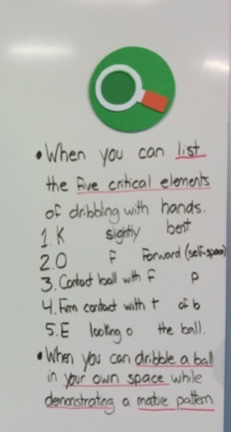 • When you can list
the five critical elements
of dribbling with hands.
1. K slightly bent
2. O F Forward (self-space)
3. Contact ball with F P
4. Firm contact with t of b
5. E looking o the ball.
• When you can dribble a ball
in your own space while
demonstrating a mature pattern